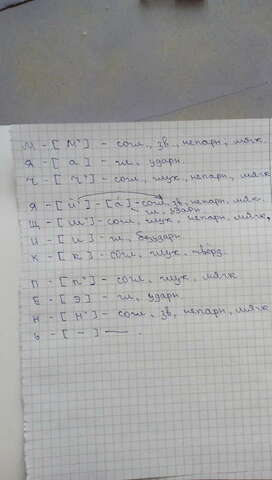 М - [ м' ] - согл., зв, непарн., мягк.
Я - [ а ] - гл., ударн.
Ч - [ ч' ] - согл, глух, непарн, мягк
Я - [ й' ] - [ а ] - согл, зв, непарн, мяг.
гл, ударн
Щ - [ ш' ] - согл, глух, непарн, мягк,
И - [ и ] - гл, безударн.
К - [ к ] - согл, глух, тверд.
П - [ п' ] - согл, глух, мягк
Е - [ э ] - гл, ударн
Н - [ н' ] - согл, зв, непарн, мягк
Ь - [ - ] — .